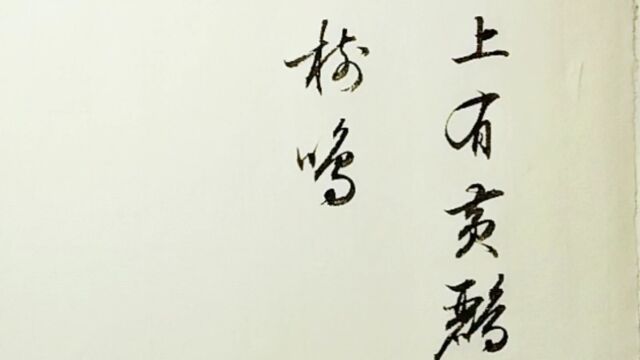 上有黄鹂
树鸣